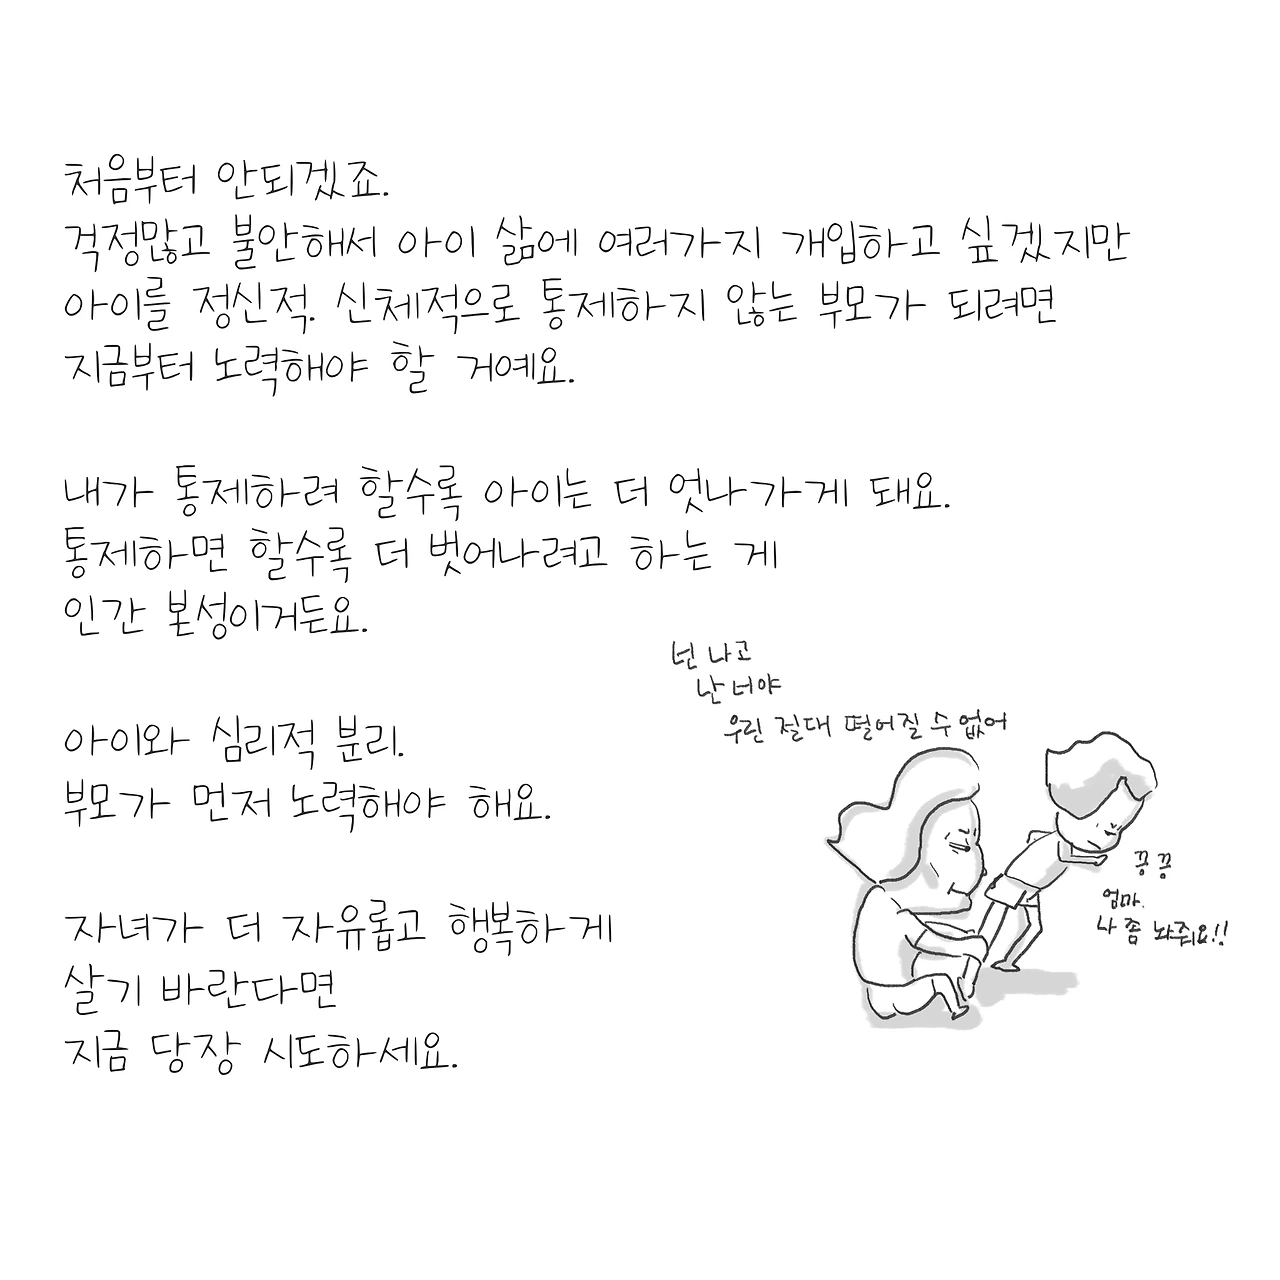 처음부터 안되겠죠.
걱정많고 불안해서 아이 삶에 여러가지 개입하고 싶겠지만
아이를 정신적. 신체적으로 통제하지 않는 부모가 되려면
지금부터 노력해야 할 거예요.
내가 통제하려 할수록 아이는 더 엇나가게 돼요.
통제하면 할수록 더 벗어나려고 하는 게
인간 본성이거든요.
넌 나고
난 너야
우린 절대 떨어질 수 없어
아이와 심리적 분리.
부모가 먼저 노력해야 해요.
끙끙
엄마.
나 좀 놔줘요!!
자녀가 더 자유롭고 행복하게
살기 바란다면
지금 당장 시도하세요.